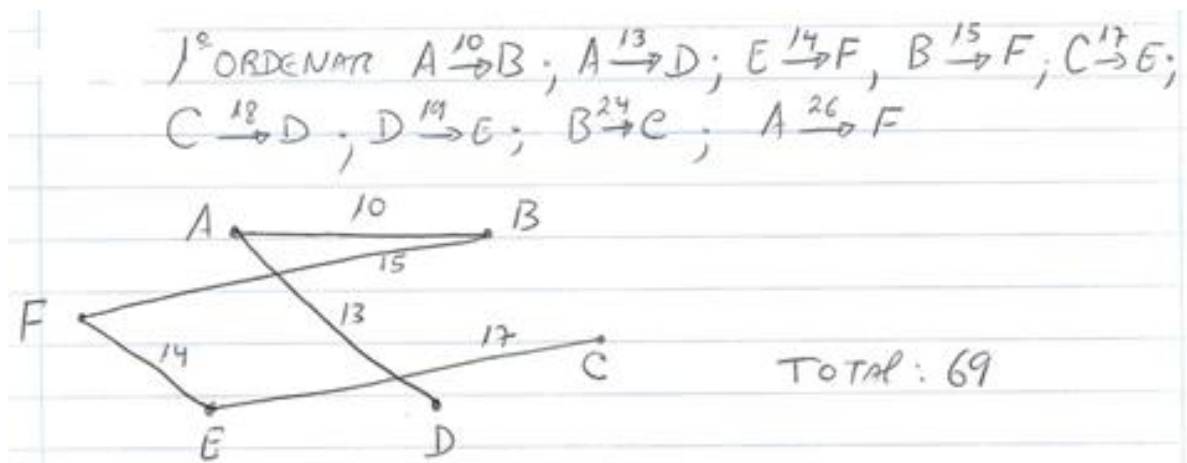 1º ORDENAR A 10→ B ; A 13→ D ; E 14→ F, B 15→ F ; C 17→ E ;
C 18→ D ; D 19→ E ; B 24→ C ; A 26→ F
A 10 B
15
F 13
14 17 C
TOTAL : 69
E D